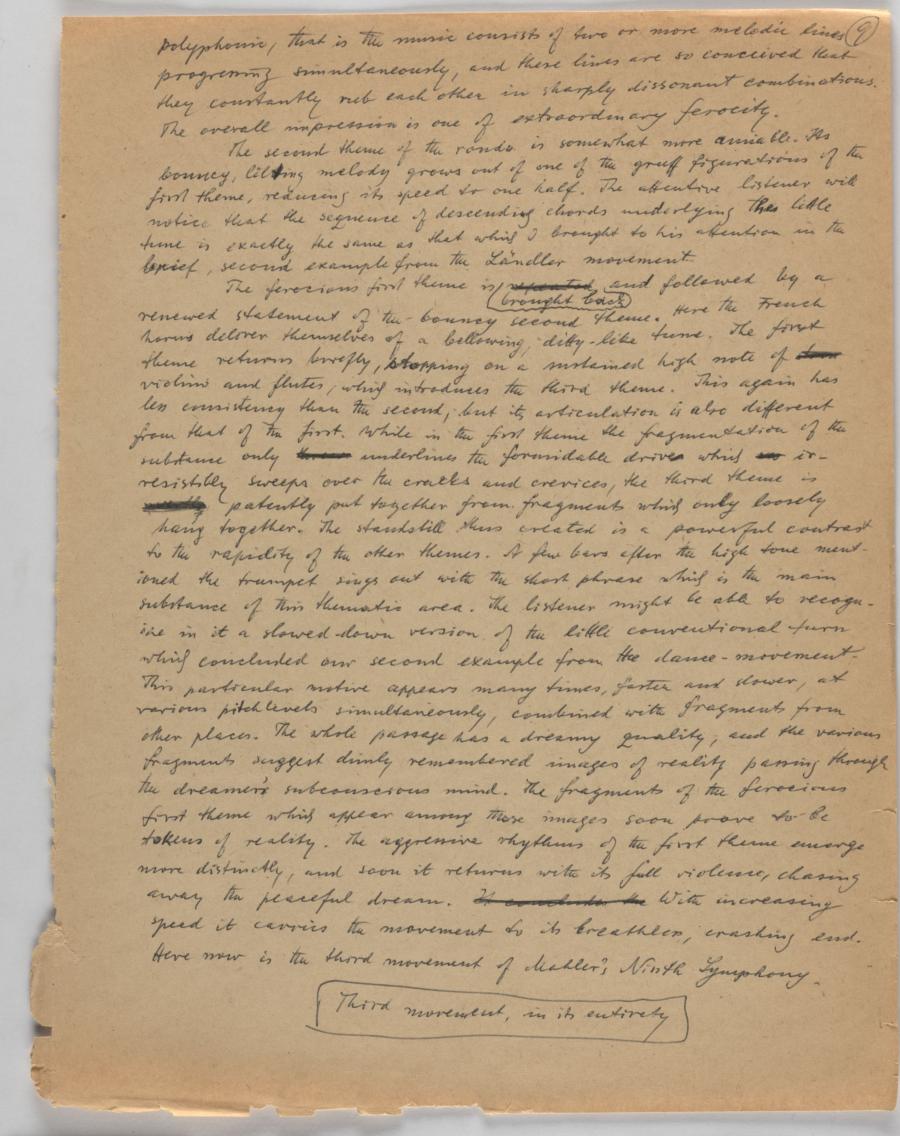 polyphonic, that is the music consists of two or more melodic lines 9
progressing simultaneously, and these lines are so conceived that
they constantly rub each other in sharply dissonant combinations.
The overall impression is one of extraordinary ferocity.
The second theme of the rondo is somewhat more amiable. Its
bouncy, lilting melody grows out of one of the gruff figurations of the
first theme, reducing its speed to one half. The attentive listener will
notice that the sequence of descending chords underlying this little
tune is exactly the same as that which I brought to his attention in the
brief, second example from the Ländler movement.
The ferocious first theme is repeated and followed by a
brought back
renewed statement of the bouncy second theme. Here the French
horns deliver themselves of a bellowing, ditty-like tune. The first
theme returns briefly, stopping on a sustained high note of
violins and flutes, which introduces the third theme. This again has
less consistency than the second, but its articulation is also different
from that of the first. While in the first theme the fragmentation of the
substance only underlines the formidable drive which ir-
resistibly sweeps over the cracks and crevices, the third theme is
patently put together from fragments which only loosely
hang together. The standstill thus created is a powerful contrast
to the rapidity of the other themes. A few bars after the high tone ment-
ioned the trumpet sings out with the short phrase which is the main
substance of this thematic area. The listener might be able to recogn-
ize in it a slowed-down version of the little conventional turn
which concluded our second example from the dance-movement.
This particular motive appears many times, faster and slower, at
various pitch levels simultaneously, combined with fragments from
other places. The whole passage has a dreamy quality, and the various
fragments suggest dimly remembered images of reality passing through
the dreamer's subconscious mind. The fragments of the ferocious
first theme which appear among these images soon prove to be
tokens of reality. The aggressive rhythms of the first theme emerge
more distinctly, and soon it returns with its full violence, chasing
away the peaceful dream. It concludes the With increasing
speed it carries the movement to its breathless, crashing end.
Here now is the third movement of Mahler's Ninth Symphony.
Third movement, in its entirety